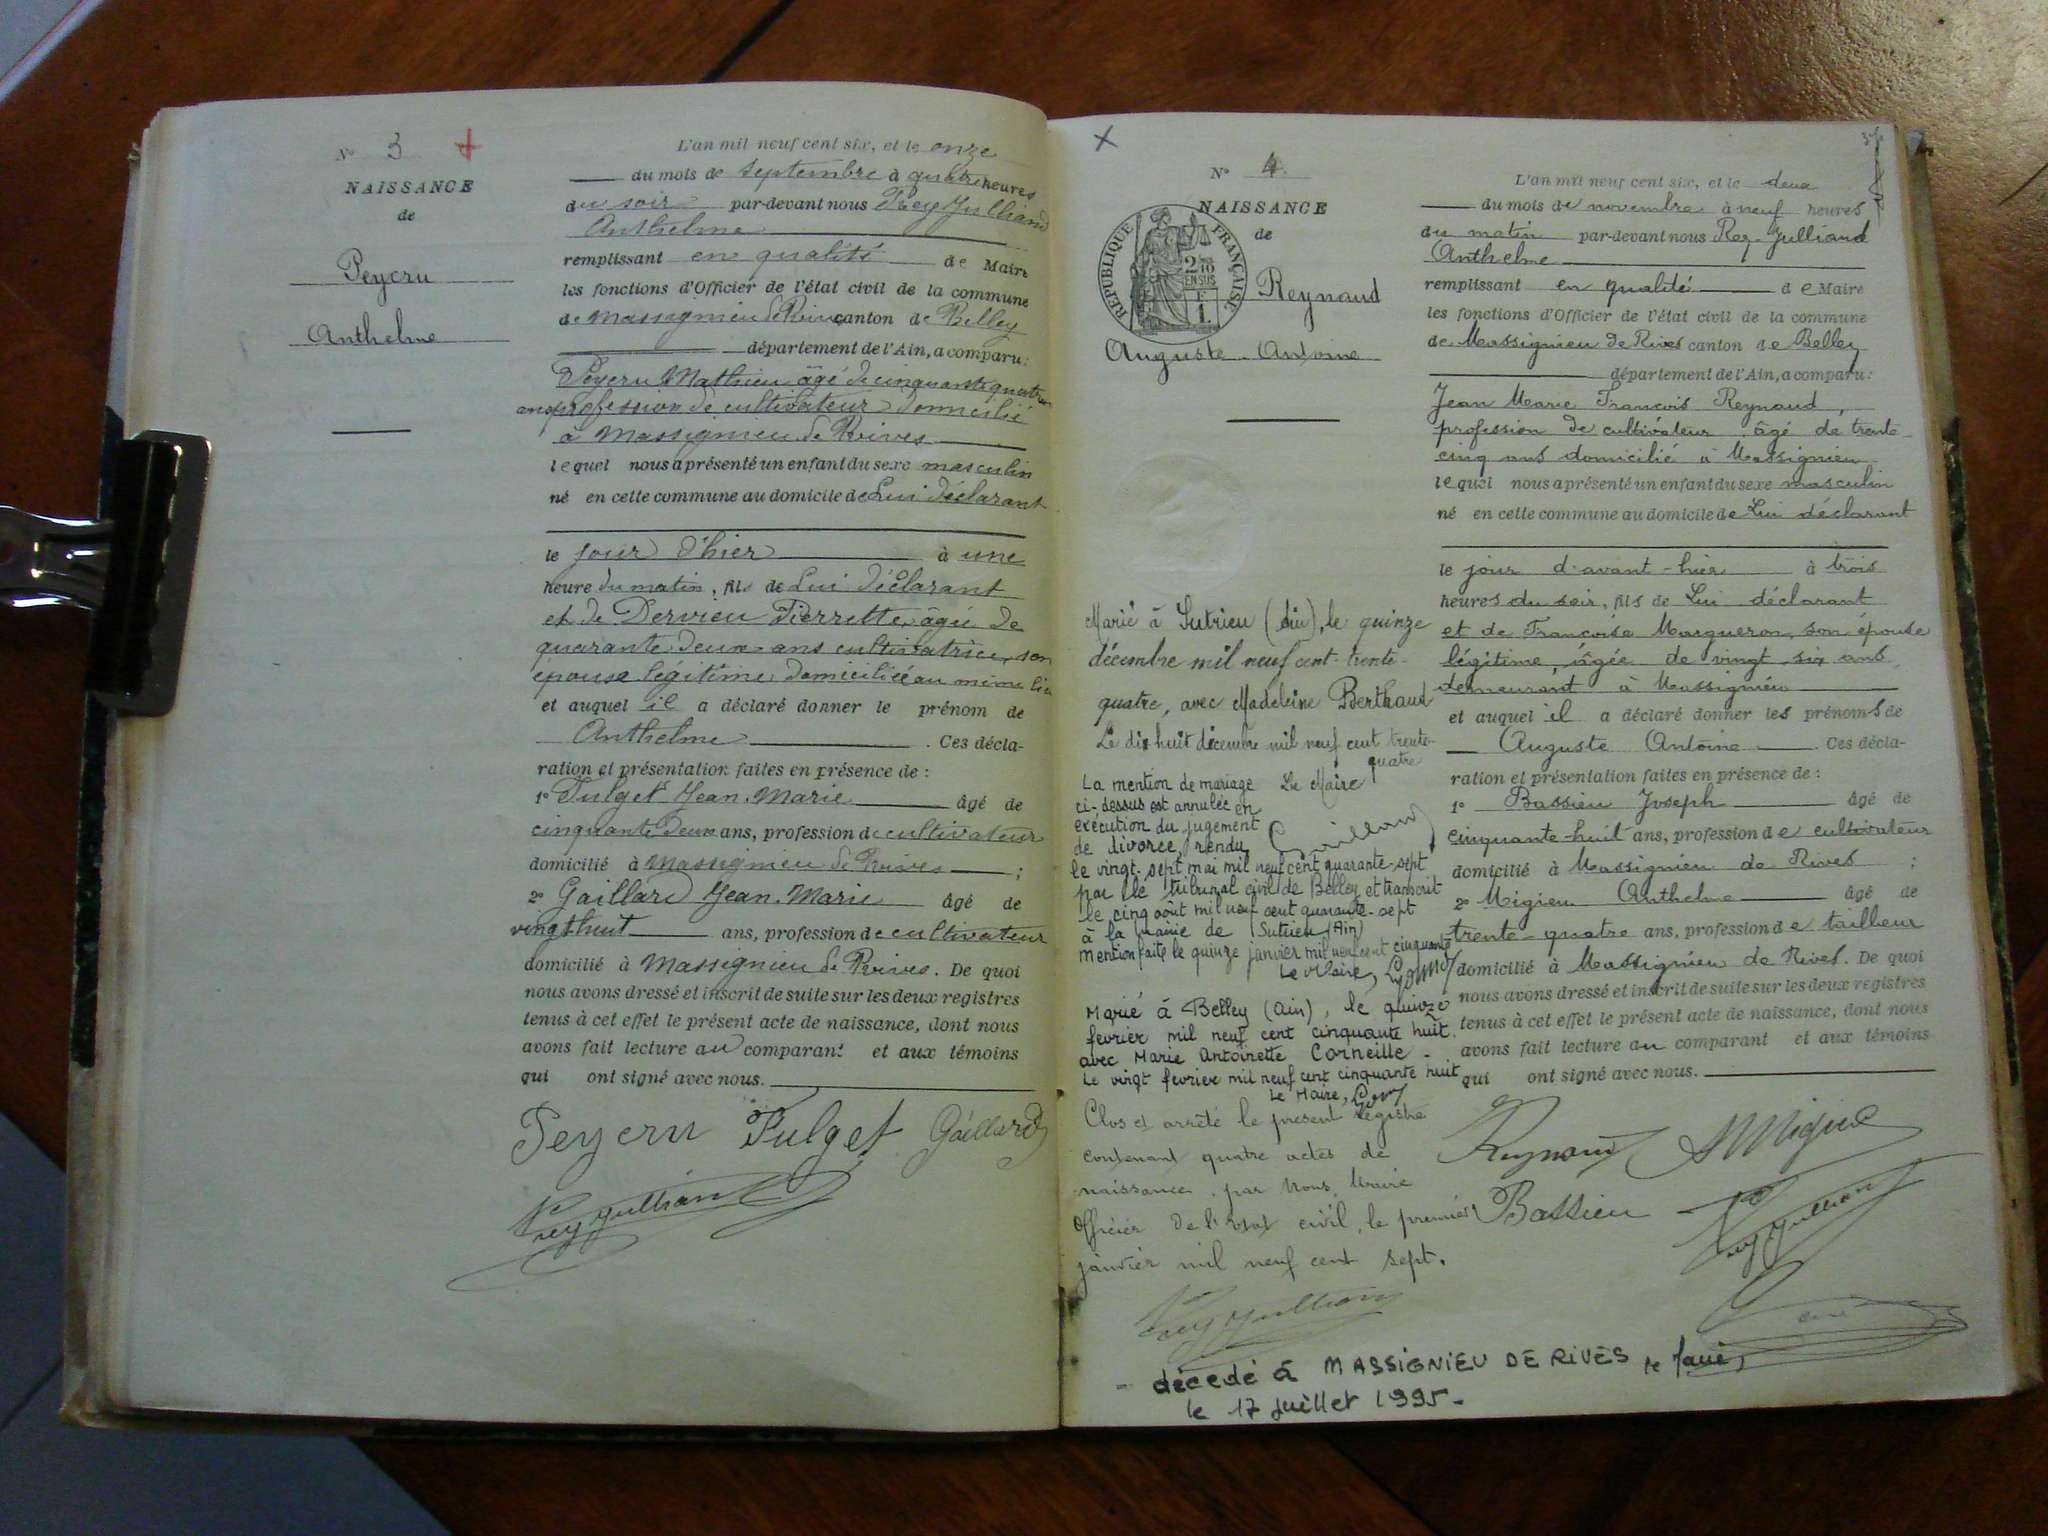 N° 3
NAISSANCE
de
Peycru
Anthelme
L'an mil neuf cent six, et le onze
du mois de septembre à quatre heures
du soir par-devant nous Rey Julliand
Anthelme
remplissant en qualité de Maire
les fonctions d'Officier de l'état civil de la commune
de Massignieu de Rives canton de Belley
département de l'Ain, a comparu :
Peycru Mathieu âgé de cinquante quatre
ans profession de cultivateur domicilié
à Massignieu de Rives
lequel nous a présenté un enfant du sexe masculin
né en cette commune au domicile de Lui déclarant
le jour d'hier à une
heure du matin, fils de Lui déclarant
et de Dervieu Pierrette, âgée de
quarante deux ans cultivatrice, son
épouse légitime domiciliée au même lieu
et auquel il a déclaré donner le prénom de
Anthelme . Ces décla-
ration et présentation faites en présence de :
1° Pulget Jean-Marie âgé de
cinquante deux ans, profession de cultivateur
domicilié à Massignieu de Rives ;
2° Gaillard Jean-Marie âgé de
vingt huit ans, profession de cultivateur
domicilié à Massignieu de Rives. De quoi
nous avons dressé et inscrit de suite sur les deux registres
tenus à cet effet le présent acte de naissance, dont nous
avons fait lecture au comparant et aux témoins
qui ont signé avec nous.
Peycru Pulget Gaillard
Rey Julliand
N° 4
NAISSANCE
de
RÉPUBLIQUE FRANÇAISE
2/10
EN SUS
Reynaud
Auguste Antoine
Marié à Sutrieu (Ain), le quinze
décembre mil neuf cent trente-
quatre, avec Madeleine Berthaud
Le dix huit décembre mil neuf cent trente-
quatre
Le Maire
La mention de mariage
ci-dessus est annulée en
exécution du jugement
de divorce rendu
le vingt-sept mai mil neuf cent quarante-sept
par le tribunal civil de Belley et transcrit
le cinq août mil neuf cent quarante-sept
à la mairie de Sutrieu (Ain)
Mention faite le quinze janvier mil neuf cent cinquante
Le Maire,
Marié à Belley (Ain), le quinze
février mil neuf cent cinquante huit
avec Marie Antoinette Corneille -
Le vingt février mil neuf cent cinquante huit
Le Maire,
Clos et arrêté le présent registre
contenant quatre actes de
naissance, par Nous, Maire
Officier de l'Etat civil, le premier
janvier mil neuf cent sept.
Rey Julliand
L'an mil neuf cent six, et le deux
du mois de novembre à neuf heures
du matin par-devant nous Rey-Julliand
Anthelme
remplissant en qualité de Maire
les fonctions d'Officier de l'état civil de la commune
de Massignieu de Rives canton de Belley
département de l'Ain, a comparu :
Jean Marie François Reynaud,
profession de cultivateur âgé de trente-
cinq ans domicilié à Massignieu
lequel nous a présenté un enfant du sexe masculin
né en cette commune au domicile de Lui déclarant
le jour d'avant-hier à trois
heures du soir, fils de Lui déclarant
et de Françoise Marqueron, son épouse
légitime, âgée de vingt six ans,
demeurant à Massignieu
et auquel il a déclaré donner les prénoms de
Auguste Antoine . Ces décla-
ration et présentation faites en présence de :
1° Bassieu Joseph âgé de
cinquante-huit ans, profession de cultivateur
domicilié à Massignieu de Rives ;
2° Migieu Anthelme âgé de
trente-quatre ans, profession de tailleur
domicilié à Massignieu de Rives. De quoi
nous avons dressé et inscrit de suite sur les deux registres
tenus à cet effet le présent acte de naissance, dont nous
avons fait lecture au comparant et aux témoins
qui ont signé avec nous.
Reynaud A Migieu
Bassieu Rey Julliand
- décédé à MASSIGNIEU DE RIVES
le 17 juillet 1995 -